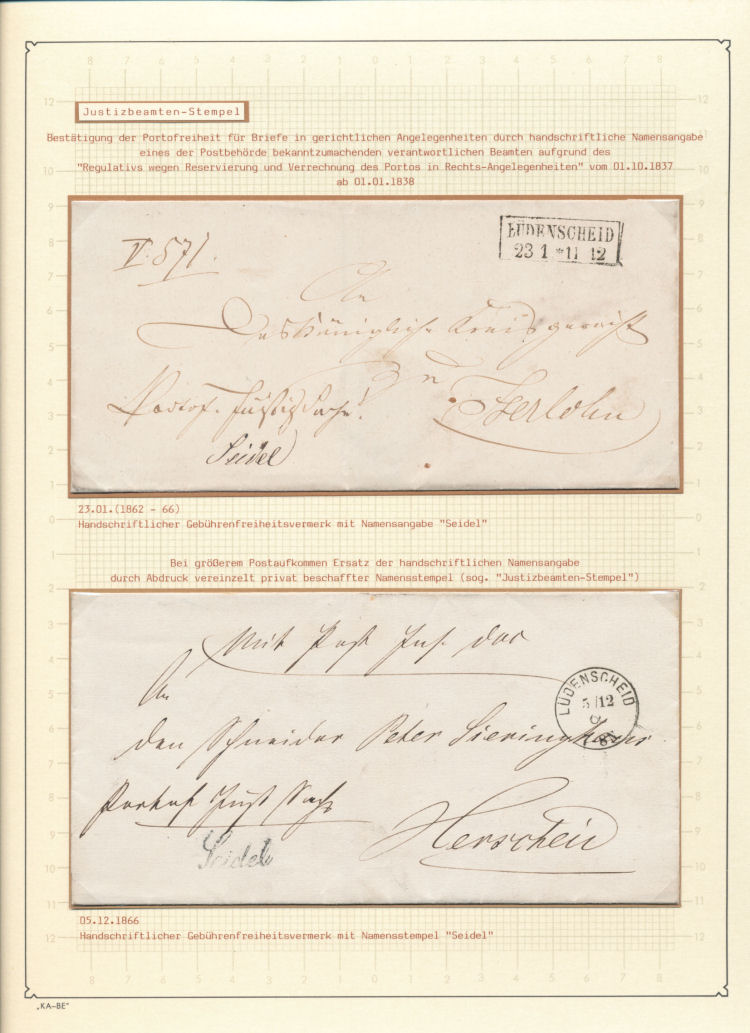 Justizbeamten-Stempel
Bestätigung der Portofreiheit für Briefe in gerichtlichen Angelegenheiten durch handschriftliche Namensangabe
eines der Postbehörde bekanntzumachenden verantwortlichen Beamten aufgrund des
"Regulativs wegen Reservierung und Verrechnung des Portos in Rechts-Angelegenheiten" vom 01.10.1837
ab 01.01.1838
V. 571.
LÜDENSCHEID
23 1 *11 12
An
Das Königliche Kreisgericht
zu
Iserlohn
Portof. Justizsache!
Seidel
23.01.(1862 - 66)
Handschriftlicher Gebührenfreiheitsvermerk mit Namensangabe "Seidel"
Bei größerem Postaufkommen Ersatz der handschriftlichen Namensangabe
durch Abdruck vereinzelt privat beschaffter Namensstempel (sog. "Justizbeamten-Stempel")
Mit Post Ins. Doc
An
LÜDENSCHEID
5/12
den Schneider Peter Sieringhaus
Portof Just Sache
Herscheid
Seidel
05.12.1866
Handschriftlicher Gebührenfreiheitsvermerk mit Namensstempel "Seidel"
„KA-BE"